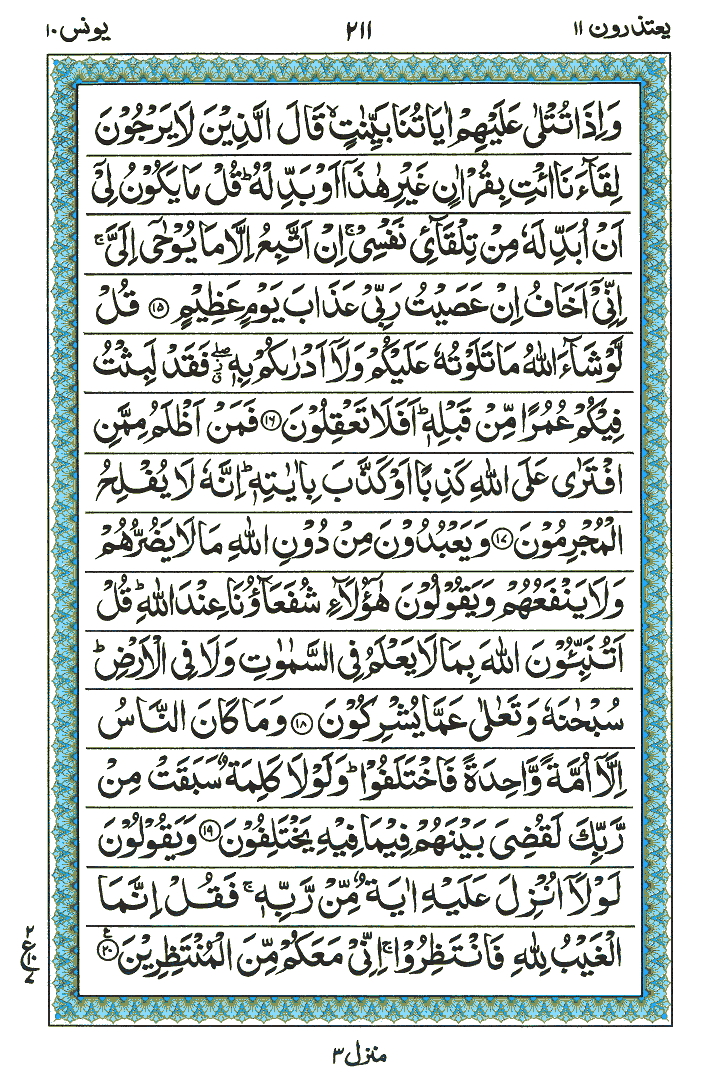 يعتذرون ١١ ٢١١ يونس ١٠
وَاِذَا تُتْلٰى عَلَيْهِمْ اٰيَاتُنَا بَيِّنٰتٍ ۙ قَالَ الَّذِيْنَ لَا يَرْجُوْنَ
لِقَآءَنَا ائْتِ بِقُرْاٰنٍ غَيْرِ هٰذَآ اَوْ بَدِّلْهُ ؕ قُلْ مَا يَكُوْنُ لِيْۤ
اَنْ اُبَدِّلَهٗ مِنْ تِلْقَآئِ نَفْسِيْ ۚ اِنْ اَتَّبِعُ اِلَّا مَا يُوْحٰۤى اِلَيَّ ۚ
اِنِّيْۤ اَخَافُ اِنْ عَصَيْتُ رَبِّيْ عَذَابَ يَوْمٍ عَظِيْمٍ ﴿١٥﴾ قُلْ
لَّوْ شَآءَ اللّٰهُ مَا تَلَوْتُهٗ عَلَيْكُمْ وَلَاۤ اَدْرٰىكُمْ بِهٖ ۖ فَقَدْ لَبِثْتُ
فِيْكُمْ عُمُرًا مِّنْ قَبْلِهٖ ؕ اَفَلَا تَعْقِلُوْنَ ﴿١٦﴾ فَمَنْ اَظْلَمُ مِمَّنِ
افْتَرٰى عَلَى اللّٰهِ كَذِبًا اَوْ كَذَّبَ بِاٰيٰتِهٖ ؕ اِنَّهٗ لَا يُفْلِحُ
الْمُجْرِمُوْنَ ﴿١٧﴾ وَيَعْبُدُوْنَ مِنْ دُوْنِ اللّٰهِ مَا لَا يَضُرُّهُمْ
وَلَا يَنْفَعُهُمْ وَيَقُوْلُوْنَ هٰٓؤُلَآءِ شُفَعَآؤُنَا عِنْدَ اللّٰهِ ؕ قُلْ
اَتُنَبِّئُوْنَ اللّٰهَ بِمَا لَا يَعْلَمُ فِي السَّمٰوٰتِ وَلَا فِي الْاَرْضِ ؕ
سُبْحٰنَهٗ وَتَعٰلٰى عَمَّا يُشْرِكُوْنَ ﴿١٨﴾ وَمَا كَانَ النَّاسُ
اِلَّاۤ اُمَّةً وَّاحِدَةً فَاخْتَلَفُوْا ؕ وَلَوْلَا كَلِمَةٌ سَبَقَتْ مِنْ
رَّبِّكَ لَقُضِيَ بَيْنَهُمْ فِيْمَا فِيْهِ يَخْتَلِفُوْنَ ﴿١٩﴾ وَيَقُوْلُوْنَ
لَوْلَاۤ اُنْزِلَ عَلَيْهِ اٰيَةٌ مِّنْ رَّبِّهٖ ۚ فَقُلْ اِنَّمَا
الْغَيْبُ لِلّٰهِ فَانْتَظِرُوْا ۚ اِنِّيْ مَعَكُمْ مِّنَ الْمُنْتَظِرِيْنَ ﴿٢٠﴾ ع
٢
ع ١٠
٧
منزل ٣